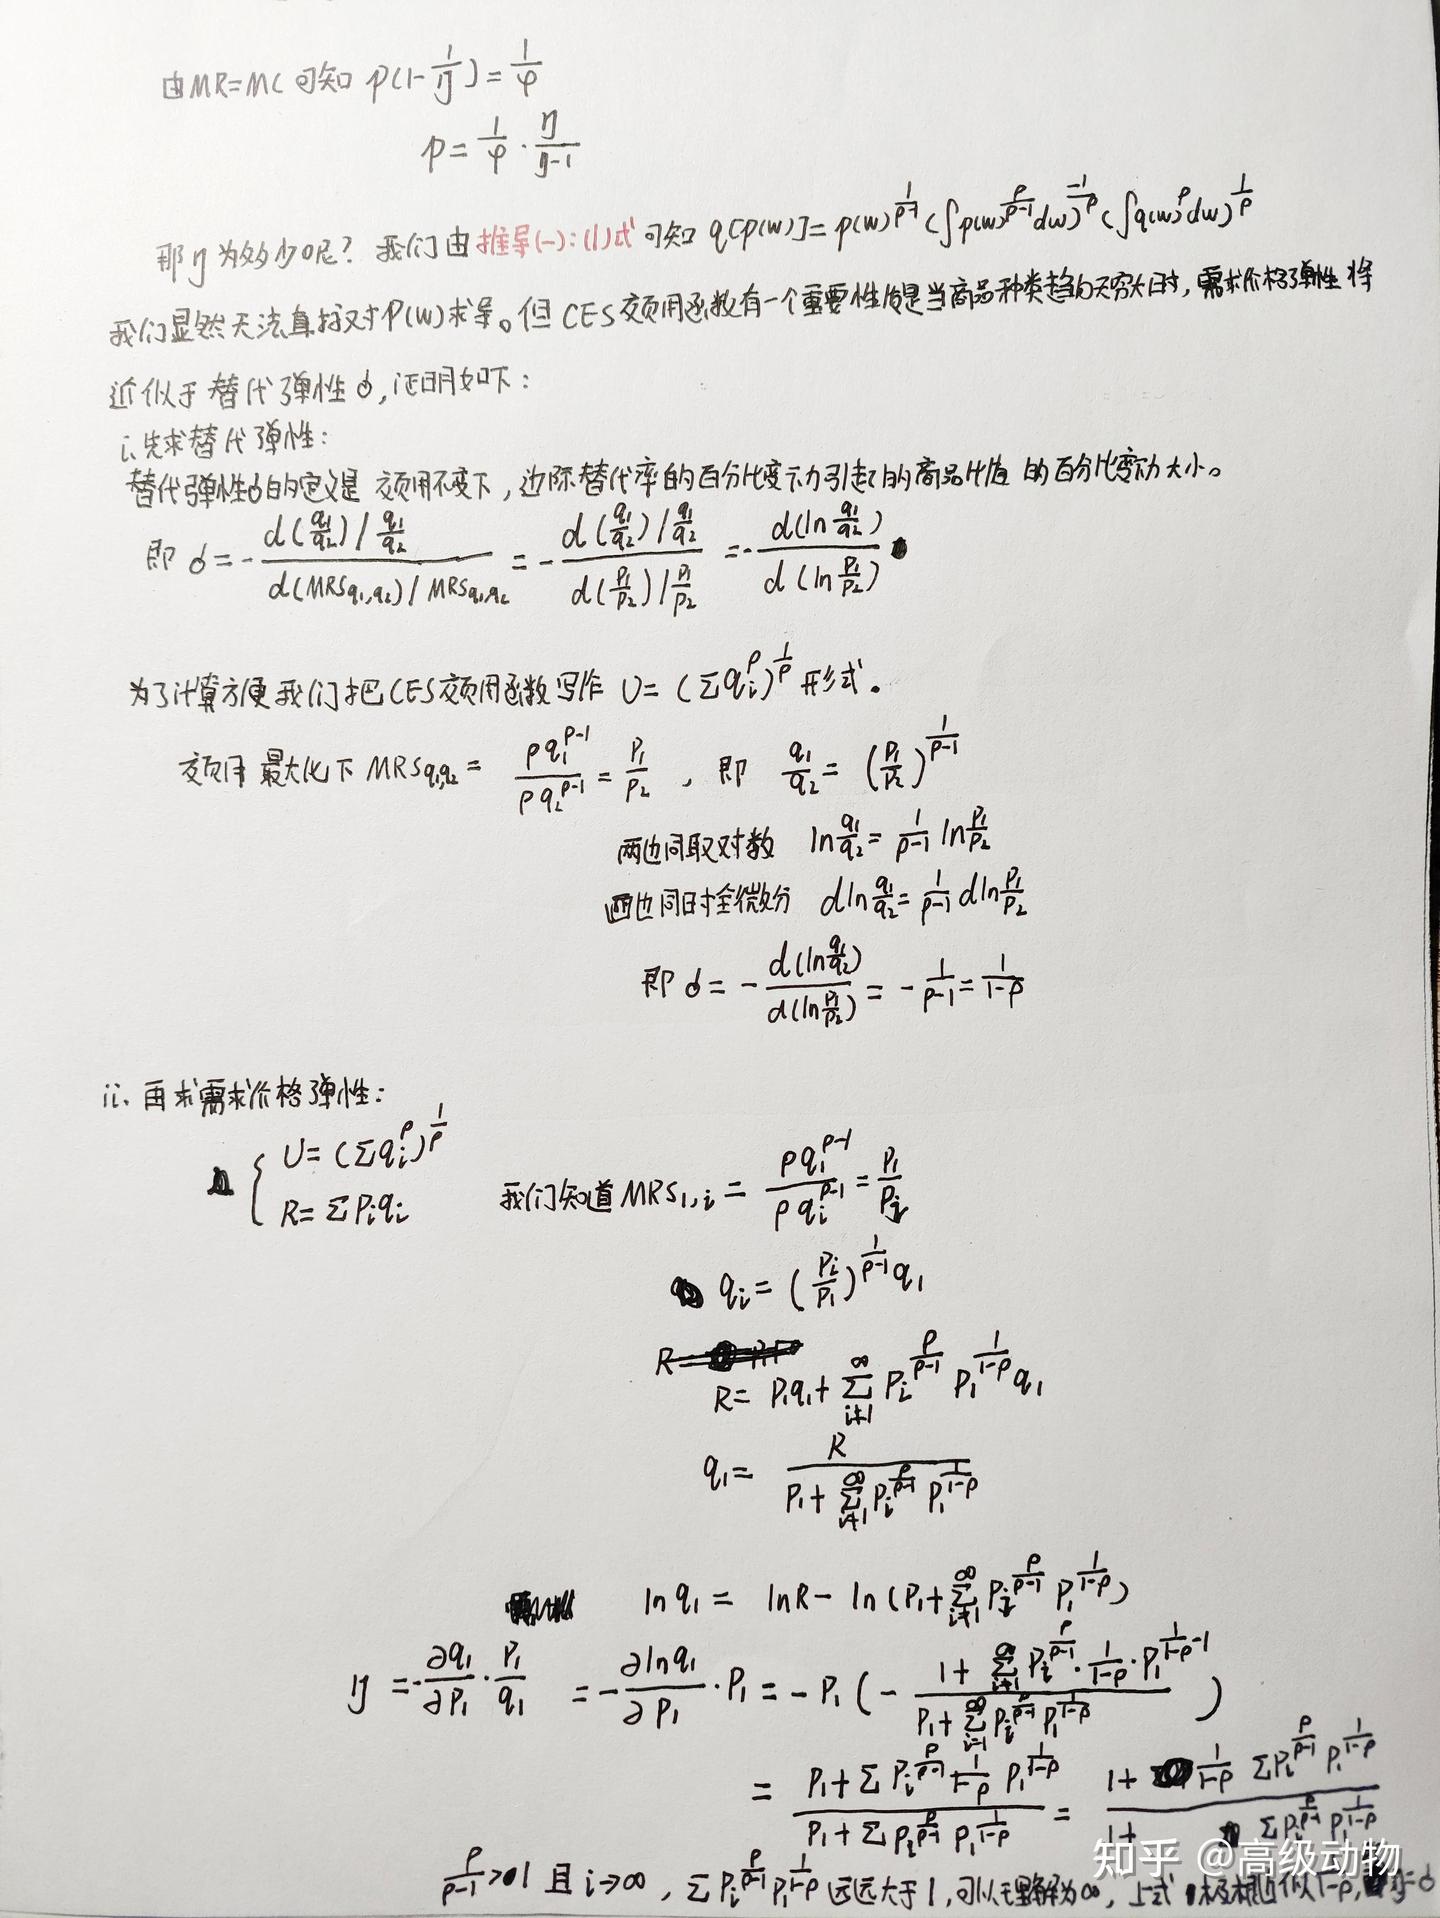 由MR=MC 可知 p(1-1/η)=1/φ
p=1/φ·η/(η-1)
那η为多少呢？我们由推导(一):(1)式可知 q[p(w)]=p(w)^{1/(ρ-1)}(∫p(w)^{ρ/(ρ-1)}dw)^{-1/ρ}(∫q(w)^ρdw)^{1/ρ}
我们显然无法直接对P(w)求导。但CES效用函数有一个重要性质是当商品种类趋向无穷大时，需求价格弹性将
近似于替代弹性σ，证明如下：
i.先求替代弹性：
替代弹性σ的定义是 效用不变下，边际替代率的百分比变动引起的商品比值的百分比变动大小。
即σ=-(d(q₁/q₂)/(q₁/q₂))/(d(MRSq₁,q₂)/MRSq₁,q₂)=-(d(q₁/q₂)/(q₁/q₂))/(d(P₁/P₂)/(P₁/P₂))=-d(ln q₁/q₂)/d(ln P₁/P₂)
为了计算方便我们把CES效用函数写作 U=(Σq_i^ρ)^{1/ρ}形式。
效用最大化下MRSq₁,q₂=ρq₁^{ρ-1}/ρq₂^{ρ-1}=P₁/P₂，即 q₁/q₂=(P₁/P₂)^{1/(ρ-1)}
两边同取对数 ln q₁/q₂=1/(ρ-1) ln P₁/P₂
两边同时全微分 dln q₁/q₂=1/(ρ-1) dln P₁/P₂
即σ=-d(ln q₁/q₂)/d(ln P₁/P₂)=-1/(ρ-1)=1/(1-ρ)
ii.再求需求价格弹性：
{U=(Σq_i^ρ)^{1/ρ}
R=ΣP_iq_i
我们知道MRS₁,i=ρq₁^{ρ-1}/ρq_i^{ρ-1}=P₁/P_i
q_i=(P_i/P₁)^{1/(ρ-1)}q₁
R=P₁q₁+Σ_{i≠1}^∞P_i^{ρ/(ρ-1)}P₁^{1/(1-ρ)}q₁
q₁=R/(P₁+Σ_{i≠1}^∞P_i^{ρ/(ρ-1)}P₁^{1/(1-ρ)})
lnq₁=lnR-ln(P₁+Σ_{i≠1}^∞P_i^{ρ/(ρ-1)}P₁^{1/(1-ρ)})
η=-∂q₁/∂P₁·P₁/q₁=-∂lnq₁/∂P₁·P₁=-P₁(-(1+Σ_{i≠1}^∞P_i^{ρ/(ρ-1)}·1/(1-ρ)·P₁^{1/(1-ρ)-1})/(P₁+Σ_{i=1}^∞P_i^{ρ/(ρ-1)}P₁^{1/(1-ρ)}))
=(P₁+ΣP_i^{ρ/(ρ-1)}1/(1-ρ)P₁^{1/(1-ρ)})/(P₁+ΣP_i^{ρ/(ρ-1)}P₁^{1/(1-ρ)})=(1+1/(1-ρ)ΣP_i^{ρ/(ρ-1)}P₁^{1/(1-ρ)})/(1+ΣP_i^{ρ/(ρ-1)}P₁^{1/(1-ρ)})
ρ/(ρ-1)>1且i→∞，ΣP_i^{ρ/(ρ-1)}P₁^{1/(1-ρ)}远远大于1，可以理解为∞，上式极限近似1/(1-ρ)，η=σ
知乎 @高级动物